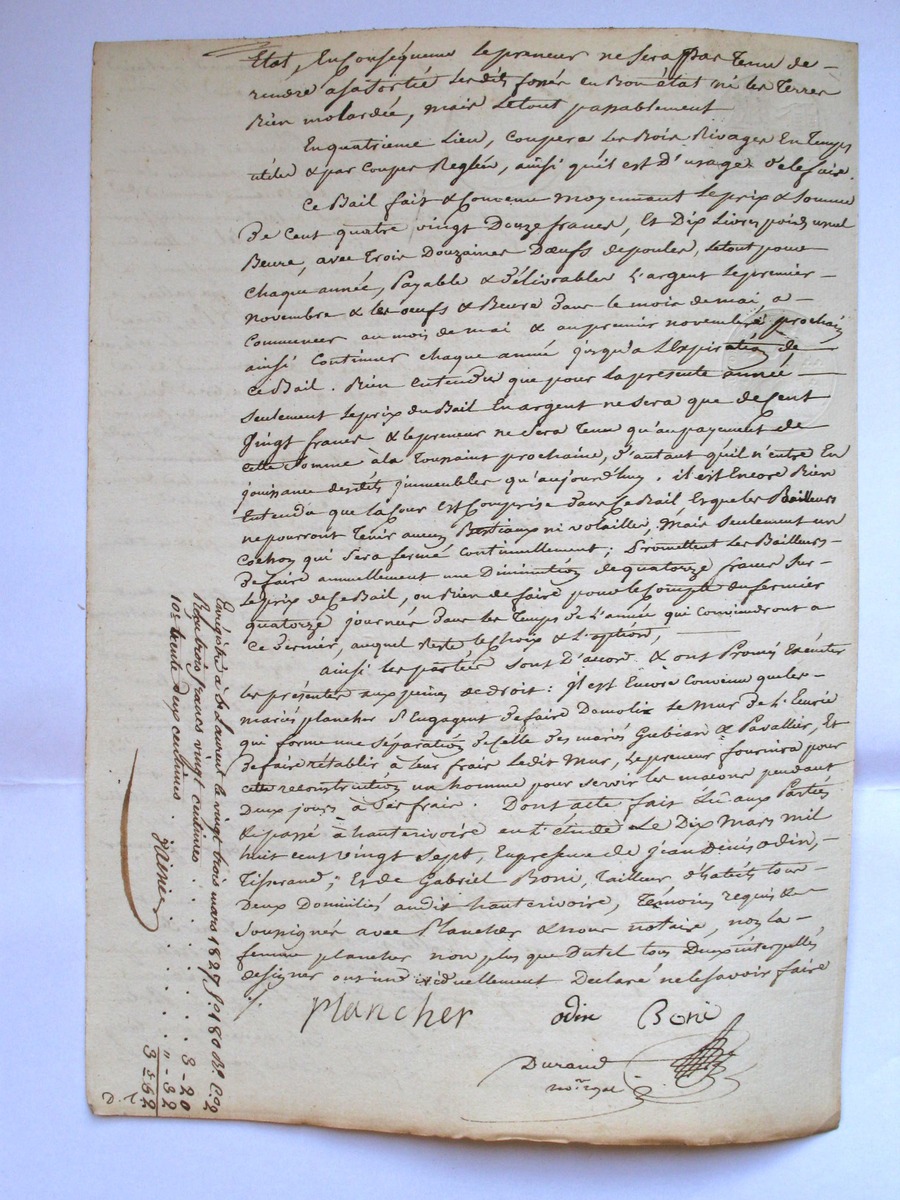 Etat, En Conséquence le preneur ne Sera pas Tenu de
rendre a sa Sortie Lesdits fossés en Bon état ni les Terres
Bien molardée, mais Letout passablement
En quatrieme Lieu, Coupera Les Bois Rivages En Temps
utile & par Coupes Reglées, ainsi qu'il est D'usage d'elefaire.
Ce Bail fait & Convenu moyennant Leprix & Somme
De Cent quatre vingt Douze francs, Et Dix Livres poids usuel
Beure, avec Trois Douzaines D'œufs depoules, Letout pour
Chaque année, Payable & Délivrables L'argent Lepremier
novembre & les œufs & Beure Dans le mois de mai, a
Commencer au mois de mai & au premier novembre prochain
ainsi Continuer chaque année jusqu'a L'Expiration de
Ce Bail. Bien Entendu que pour La présente année
Seulement Leprix du Bail En argent ne Sera que de Cent
Vingt francs & le preneur ne Sera Tenu qu'au payement de
Cette Somme à la Toussaint prochaine, d'autant qu'il n'entre En
jouissance desdits jmmeubles qu'aujourd'huy. il est Encore Bien
Entendu que la Cour est Comprise dans Ce Bail Lesquels Bailleurs
ne pourront Tenir aucun Bestiaux ni volailles, Mais seulement un
Cochon qui Sera fermé Continuellement; Promettent Les Bailleurs
De faire annuellement une Diminution de quatorze francs Sur
Le prix de Ce Bail, ou Bien de faire pour le Compte du fermier
quatorze journées Dans les Temps de L'année qui Conviendront a
Ce Dernier, auquel Reste le Choix & L'option,
ainsi les parties Sont D'accord & ont Promis Exécuter
Les présentes aux peines de droit: jl est Encore Convenu que les
mariés plancher S'Engagent De faire Demolir Le Mur de L'Ecurie
qui forme une Séparation de Celle des mariés Gubian & Pavallier, Et
De faire rétablir à leur frais Ledit Mur, Le preneur fournira pour
Cette reconstruction un homme pour servir les maçons pendant
Deux jours à Ses frais. Dont acte fait Lû aux Parties
& passé à hauterivoire en L'étude Le Dix Mars mil
huit Cent vingt Sept, En présence de jean Denis odin,
Tisserand, Et de Gabriel Boni, Tailleur d'habits tous
Deux Domiciliés audit hauterivoire, Témoins requis &
Soussignés avec Plancher & nous notaire, non la
femme plancher non plus que Dutel tous Deux interpellés
De signer ont individuellement Déclaré ne le Savoir faire
plancher odin Boni
Durand
nore. royal
Enregistré à St Laurent le vingt trois mars 1827 fo. 180 Ro. C. 2
Reçu trois francs vingt centimes . . . . . . 3 - 20
10e. trente Deux centimes . . . . . . " - 32
3 = 52